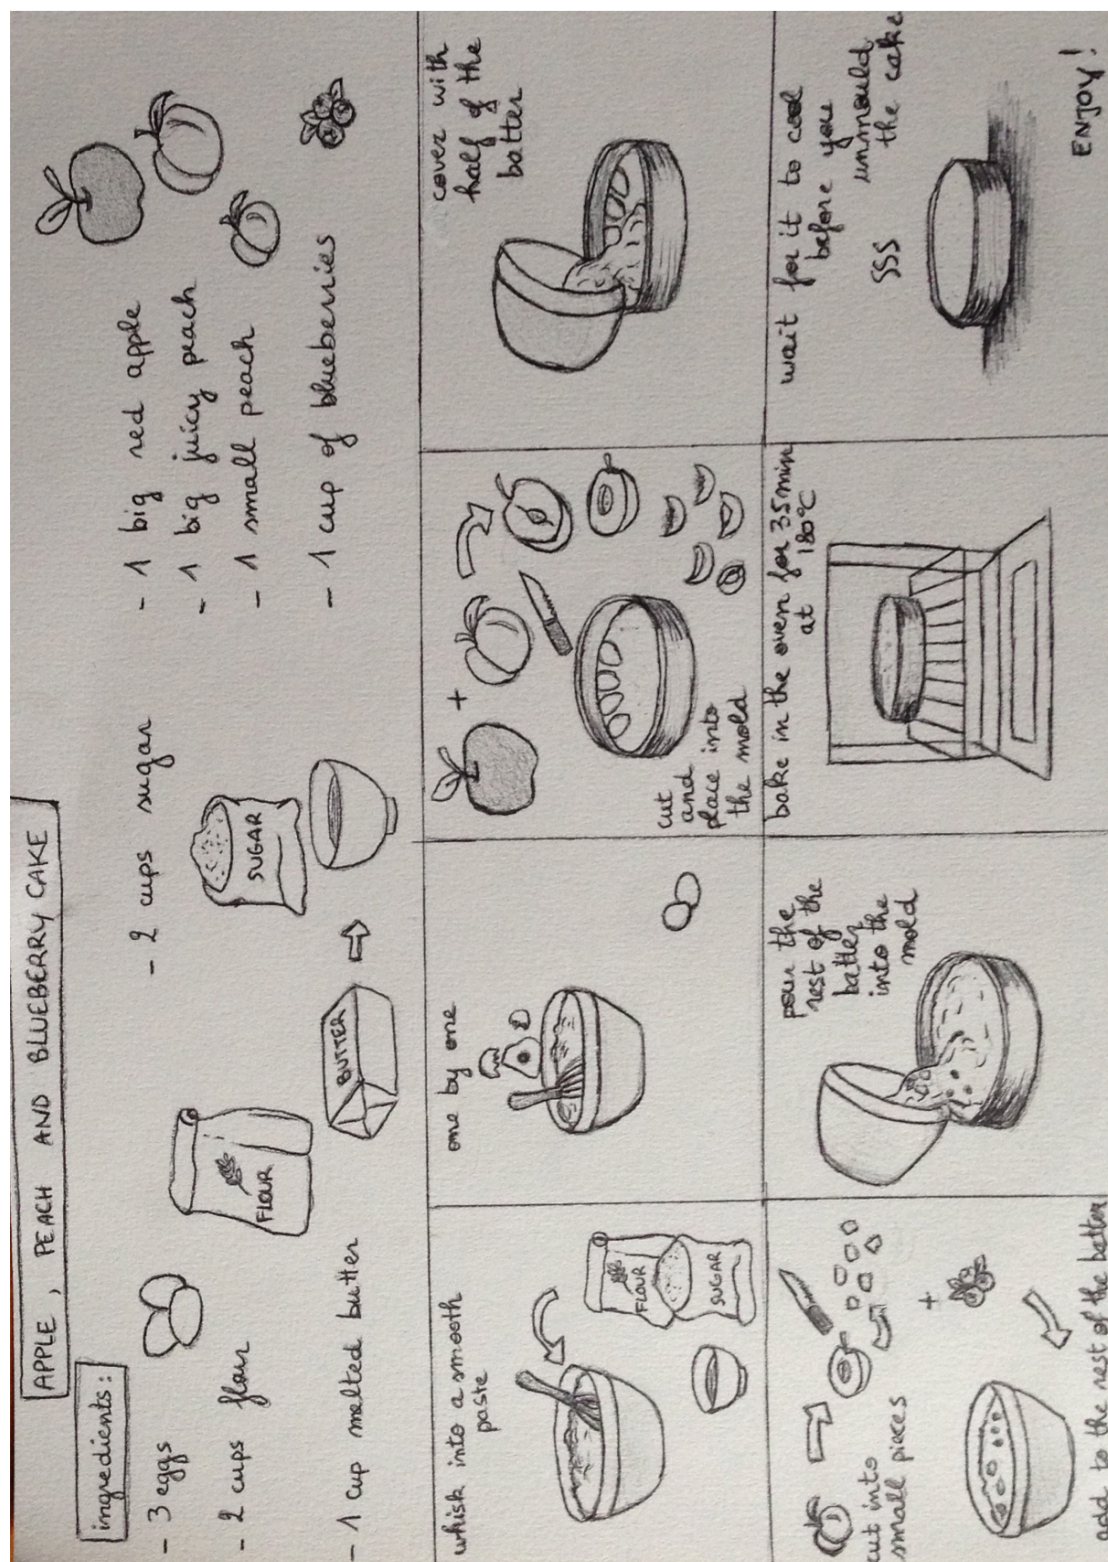 APPLE, PEACH AND BLUEBERRY CAKE
ingredients:
- 3 eggs
- 2 cups flour
FLOUR
- 1 cup melted butter
BUTTER
- 2 cups sugar
SUGAR
- 1 big red apple
- 1 big juicy peach
- 1 small peach
- 1 cup of blueberries
whisk into a smooth
paste
FLOUR
SUGAR
one by one
+
cut
and
place into
the mold
cover with
half of the
batter
cut into
small pieces
+
add to the rest of the batter
pour the
rest of the
batter
into the
mold
bake in the oven for 35 min
at 180°C
wait for it to cool
before you
unmould
the cake
SSS
ENJOY!